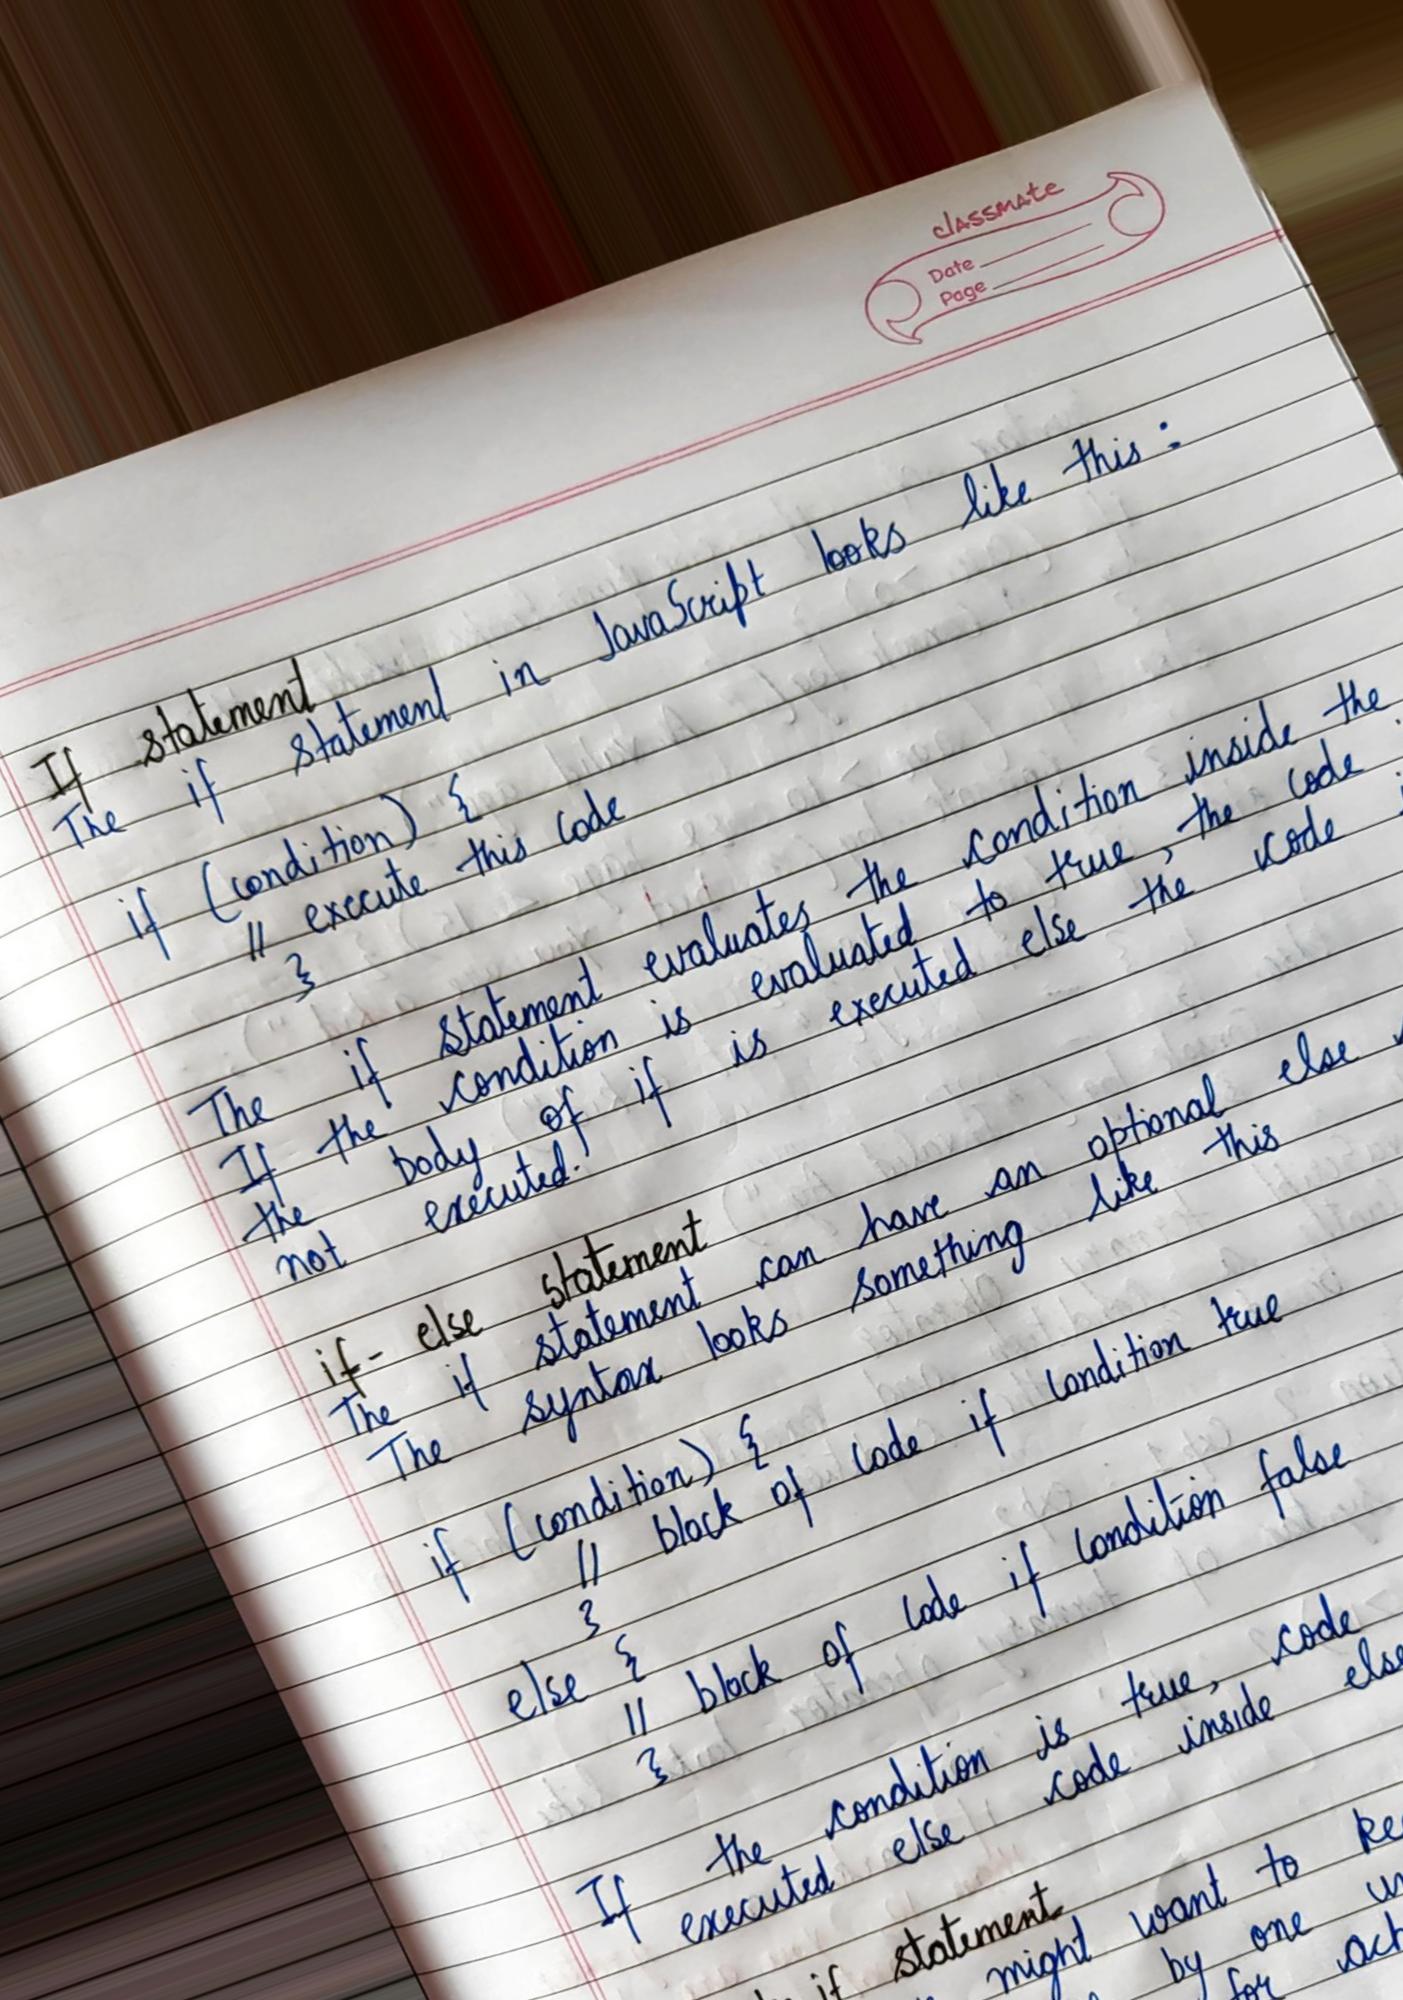 classmate
Date
Page
If statement
The if statement in JavaScript looks like this :
if (condition) {
// execute this code
}
The if statement evaluates the condition inside the
If the condition is evaluated to true, the code
the body of if is executed else the code
not executed.
if- else statement
The if statement can have an optional else
The syntax looks something like this
if (condition) {
// block of code if condition true
}
else {
// block of code if condition false
}
If the condition is true, code
executed else code inside else
if statement
might want to
by one
for